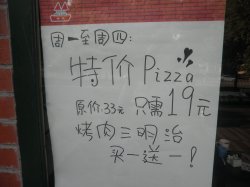 周一至周四:
特价 Pizza
原价:33元 只需19元
烤肉三明治
买一送一!